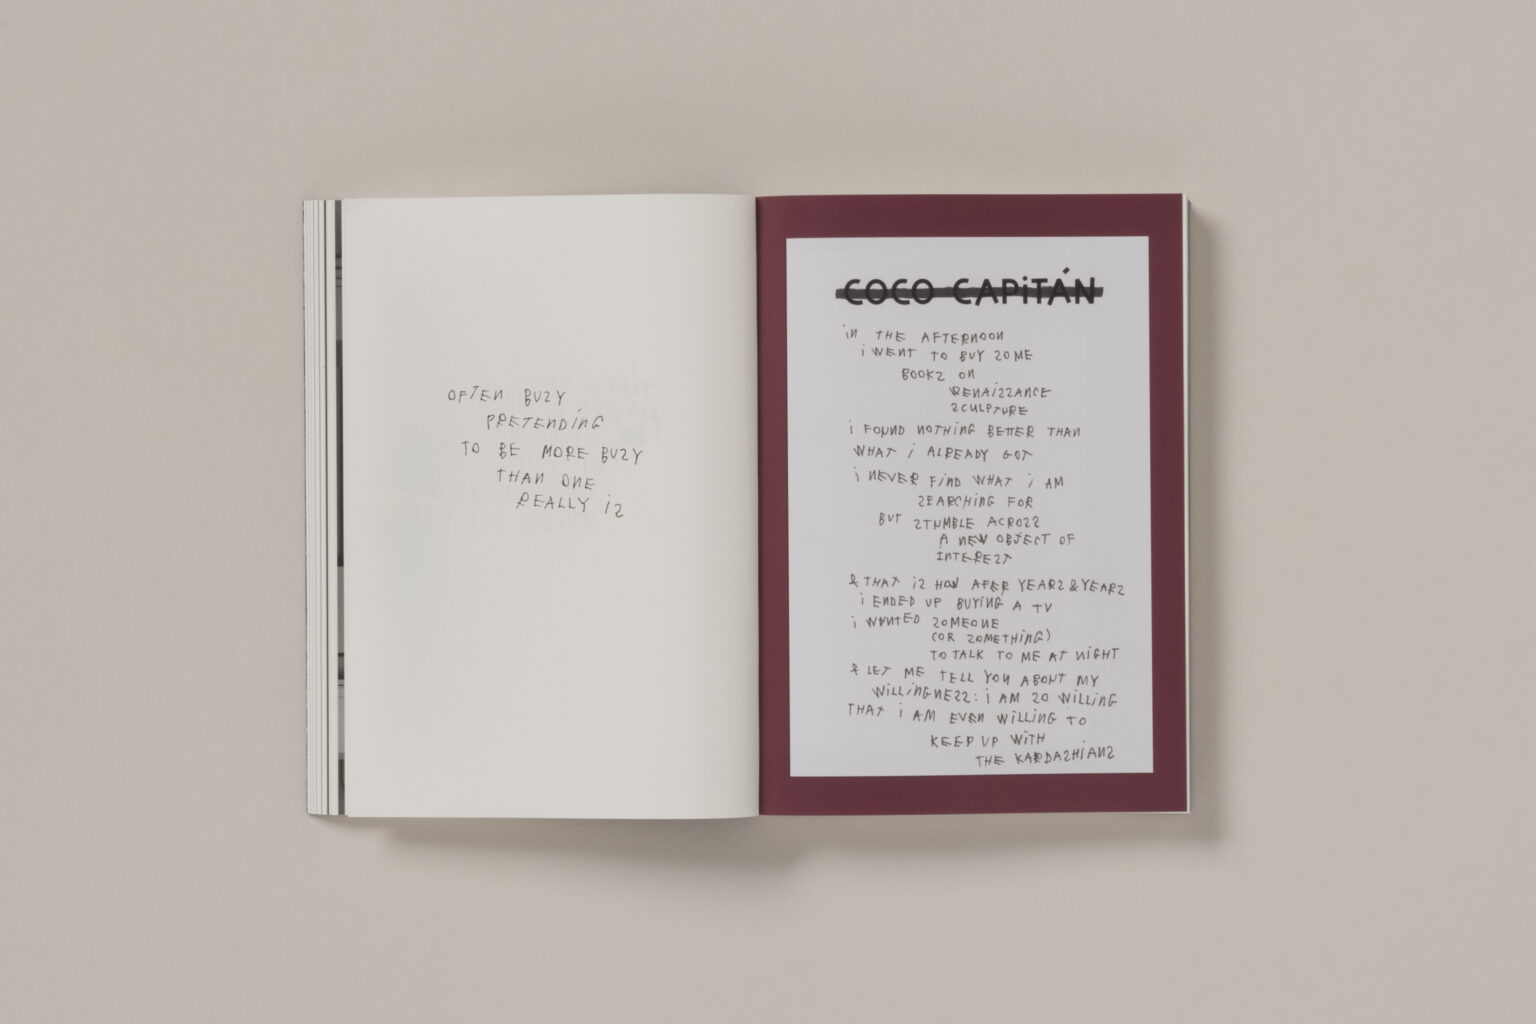 OFTEN BUSY
PRETENDING
TO BE MORE BUSY
THAN ONE
REALLY iS
COCO CAPiTÁN
iN THE AFTERNOON
i WENT TO BUY SOME
BOOKS ON
RENAiSSANCE
SCULPTURE
i FOUND NOTHiNG BETTER THAN
WHAT i ALREADY GOT
i NEVER FiND WHAT i AM
SEARCHiNG FOR
BUT STUMBLE ACROSS
A NEW OBJECT OF
INTEREST
& THAT iS HOW AFER YEARS & YEARS
i ENDED UP BUYiNG A TV
i WANTED SOMEONE
(OR SOMETHiNG)
TO TALK TO ME AT NiGHT
& LET ME TELL YOU ABOUT MY
WiLLiNGNESS: i AM SO WiLLiNG
THAT i AM EVEN WiLLiNG TO
KEEP UP WiTH
THE KARDASHiANS